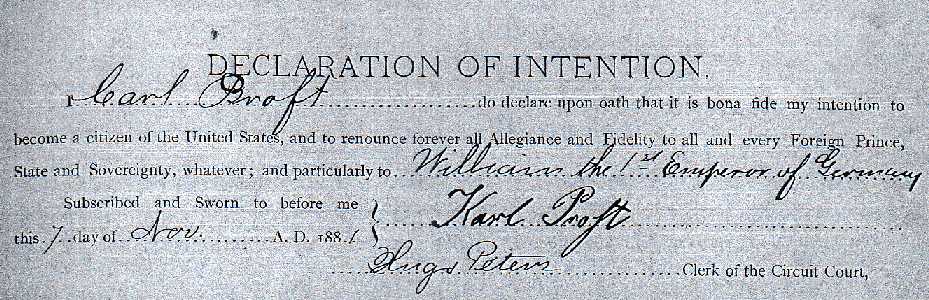 DECLARATION OF INTENTION.
I Carl Proft do declare upon oath that it is bona fide my intention to
become a citizen of the United States, and to renounce forever all Allegiance and Fidelity to all and every Foreign Prince,
State and Sovereignty, whatever; and particularly to William the 1st Emperor of Germany
Subscribed and Sworn to before me Karl Proft
this 7 day of Nov. A. D. 1881
Hugo Peters Clerk of the Circuit Court,